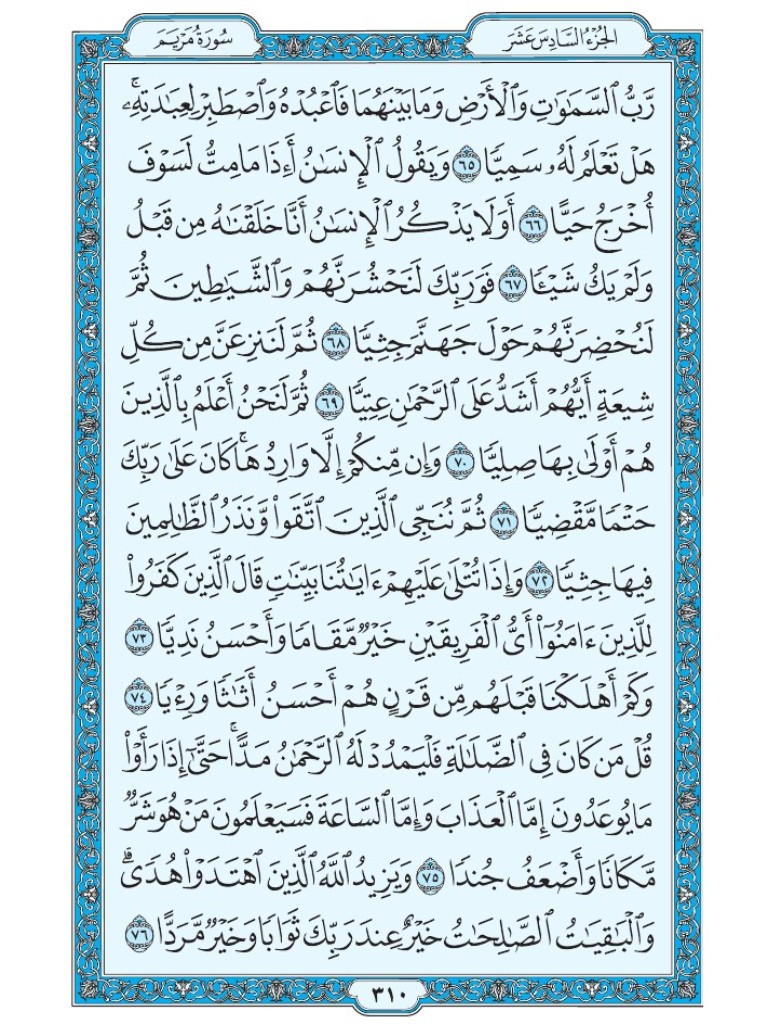 الجزء السادس عشر
سورة مريم
رَّبُّ ٱلسَّمَٰوَٰتِ وَٱلْأَرْضِ وَمَا بَيْنَهُمَا فَٱعْبُدْهُ وَٱصْطَبِرْ لِعِبَٰدَتِهِۦۚ
هَلْ تَعْلَمُ لَهُۥ سَمِيًّا ٦٥ وَيَقُولُ ٱلْإِنسَٰنُ أَءِذَا مَا مِتُّ لَسَوْفَ
أُخْرَجُ حَيًّا ٦٦ أَوَلَا يَذْكُرُ ٱلْإِنسَٰنُ أَنَّا خَلَقْنَٰهُ مِن قَبْلُ
وَلَمْ يَكُ شَيْـًٔا ٦٧ فَوَرَبِّكَ لَنَحْشُرَنَّهُمْ وَٱلشَّيَٰطِينَ ثُمَّ
لَنُحْضِرَنَّهُمْ حَوْلَ جَهَنَّمَ جِثِيًّا ٦٨ ثُمَّ لَنَنزِعَنَّ مِن كُلِّ
شِيعَةٍ أَيُّهُمْ أَشَدُّ عَلَى ٱلرَّحْمَٰنِ عِتِيًّا ٦٩ ثُمَّ لَنَحْنُ أَعْلَمُ بِٱلَّذِينَ
هُمْ أَوْلَىٰ بِهَا صِلِيًّا ٧٠ وَإِن مِّنكُمْ إِلَّا وَارِدُهَاۚ كَانَ عَلَىٰ رَبِّكَ
حَتْمًا مَّقْضِيًّا ٧١ ثُمَّ نُنَجِّى ٱلَّذِينَ ٱتَّقَوا۟ وَّنَذَرُ ٱلظَّٰلِمِينَ
فِيهَا جِثِيًّا ٧٢ وَإِذَا تُتْلَىٰ عَلَيْهِمْ ءَايَٰتُنَا بَيِّنَٰتٍ قَالَ ٱلَّذِينَ كَفَرُوا۟
لِلَّذِينَ ءَامَنُوٓا۟ أَىُّ ٱلْفَرِيقَيْنِ خَيْرٌ مَّقَامًا وَأَحْسَنُ نَدِيًّا ٧٣
وَكَمْ أَهْلَكْنَا قَبْلَهُم مِّن قَرْنٍ هُمْ أَحْسَنُ أَثَٰثًا وَرِءْيًا ٧٤
قُلْ مَن كَانَ فِى ٱلضَّلَٰلَةِ فَلْيَمْدُدْ لَهُ ٱلرَّحْمَٰنُ مَدًّاۚ حَتَّىٰٓ إِذَا رَأَوْا۟
مَا يُوعَدُونَ إِمَّا ٱلْعَذَابَ وَإِمَّا ٱلسَّاعَةَ فَسَيَعْلَمُونَ مَنْ هُوَ شَرٌّ
مَّكَانًا وَأَضْعَفُ جُندًا ٧٥ وَيَزِيدُ ٱللَّهُ ٱلَّذِينَ ٱهْتَدَوْا۟ هُدًىۗ
وَٱلْبَٰقِيَٰتُ ٱلصَّٰلِحَٰتُ خَيْرٌ عِندَ رَبِّكَ ثَوَابًا وَخَيْرٌ مَّرَدًّا ٧٦
٣١٠